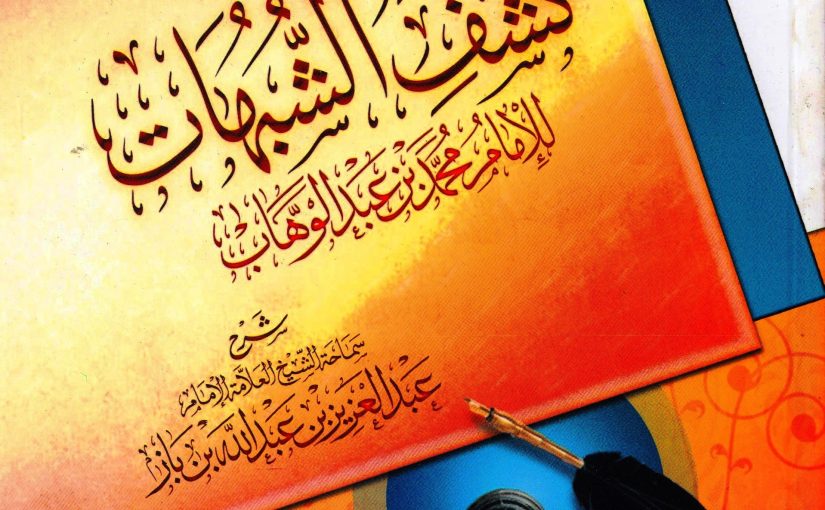 كَشْفِ الشُّبُهَات
لِلْإِمَامِ مُحَمَّد بْن عَبْد الْوَهَّاب
شرح
سماحة الشيخ العلامة الإمام
عبد العزيز بن عبد الله بن باز